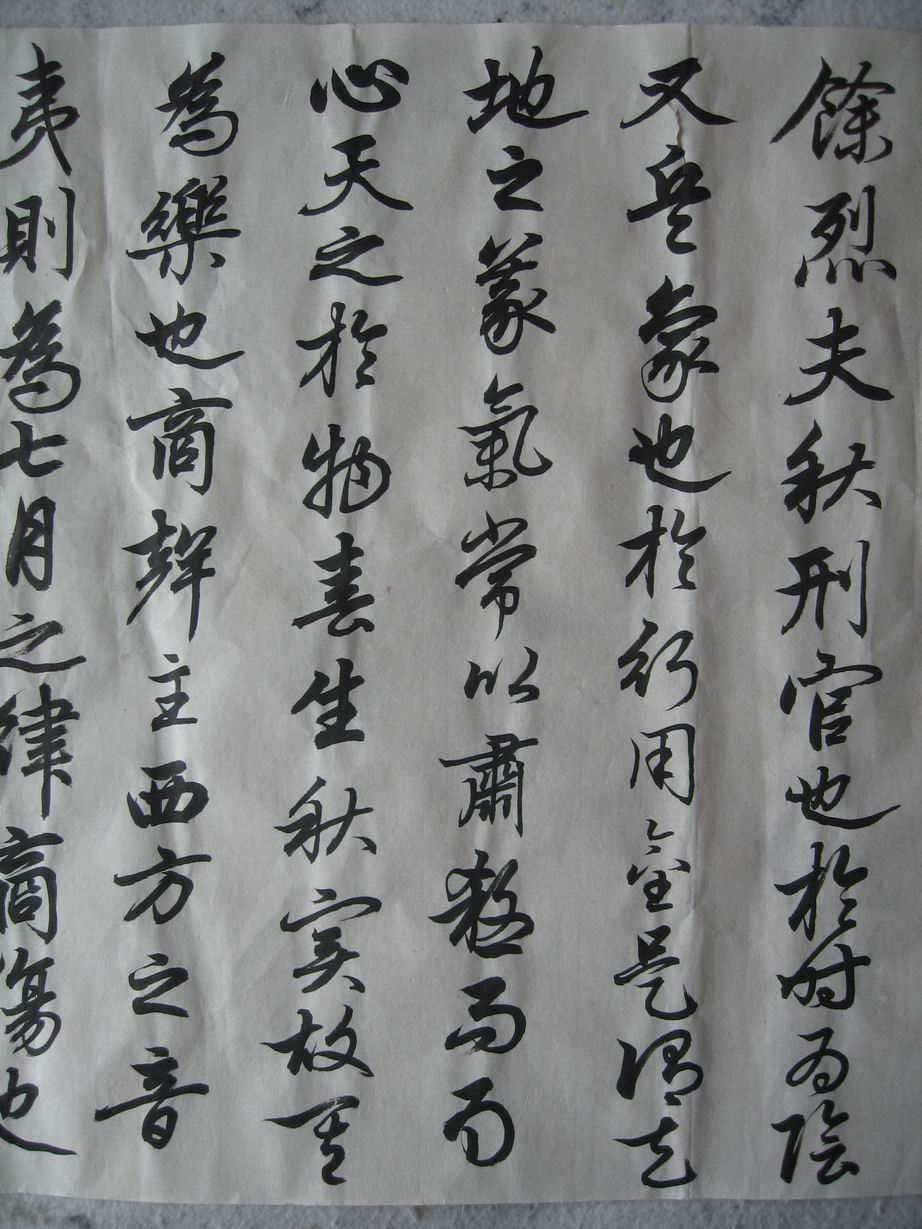 餘烈夫秋刑官也於时为陰
又兵象也於行用金是謂天
地之義氣常以肅殺而为
心天之於物春生秋實故其
為樂也商聲主西方之音
夷則為七月之律商傷也